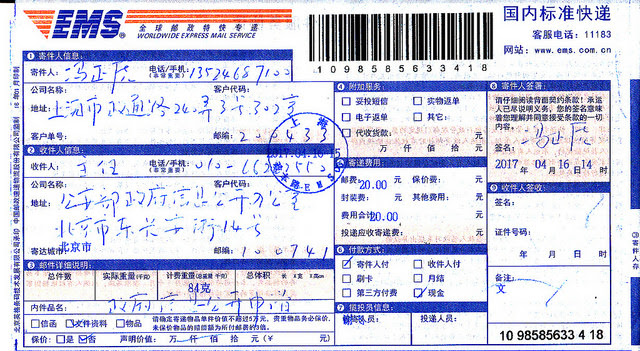 EMS 全球邮政特快专递
WORLDWIDE EXPRESS MAIL SERVICE
国内标准快递
客服电话：11183
网站：www.ems.com.cn
1098585633418
❶ 寄件人信息：
寄件人：冯正虎 电话/手机：13524687100
(非常重要)
公司名称： 客户代码：
地址：上海市政通路240弄3号302室
客户单号： 邮编：200433
❷ 收件人信息：
收件人： 主任 电话/手机：
(非常重要)
公司名称： 客户代码：
公安部政府信息公开办公室
地址：北京市东长安街14号
北京市
寄达城市： 邮编：100741
❸ 邮件详细说明：
总件数 实际重量(千克) 计费重量 总体积 长 × 宽 × 高
84克
内件品名： 政府信息公开申请
□信函 ☑文件资料 □物品
请确定寄递物品单件价值不超过5万元，贵重物品务必保价，
未保价物品的赔偿额为所付邮费的倍。
保价：□是 ☑否 声明价值： 万 仟 佰 拾 元（¥ 元）
❹ 附加服务：
□ 妥投短信 □ 实物返单
□ 电子返单 □ 其它：
□ 代收货款： 元
万 仟 佰 拾 元
2017.04.16-15
❺ 寄递费用
邮费：20.00 元 保价费： 元
封装费： 元 其他费用： 元
费用合计：20.00 元
投递应收寄递费： 元
❻ 付款方式：
☑ 寄件人付 □ 收件人付
□ 刷卡 □ 月结
□ 第三方付费 ☑ 现金
❼ 揽投员信息：
投递人员：
❽ 寄件人签署：
请仔细阅读背面契约条款！承运
人已尽说明义务，您的签名意味
着您理解并同意接受条款的一切
内容。
签名：冯正虎
2017 年 04 月 16 日 14 时
❾ 收件人签收：
签名：
证件号码：
年 月 日 时
备注：
文
10 98585633 4 18